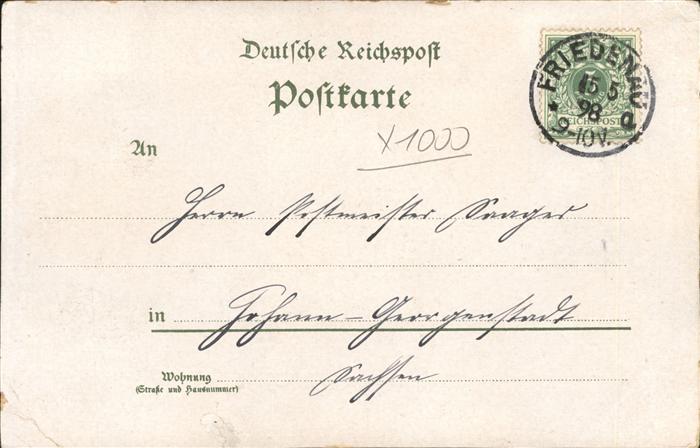 Deutsche Reichspost
Postkarte
FRIEDENAU
15 5
98
9-10V.
REICHSPOST
X1000
An
Herrn Postmeister Saager
in Johann-Georgenstadt
Wohnung
(Straße und Hausnummer)
Sachsen